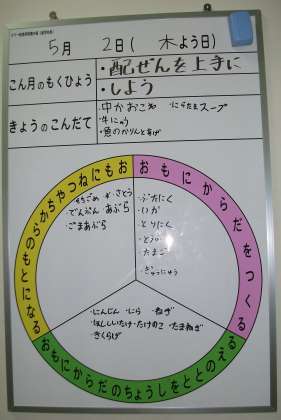 5月 2日(木よう日)
こん月のもくひょう
・配ぜんを上手に
・しよう
きょうのこんだて
・中かおこわ ・にらたまスープ
・牛にゅう
・魚のかりんとあげ
おもにねつやちからのもとになる
おもにからだをつくる
おもにからだのちょうしをととのえる
・もちごめ ・さとう
でんぷん ・あぶら
・ごまあぶら
・ぶたにく
・いか
・とりにく
・とうふ
・たまご
・ぎゅうにゅう
・にんじん ・にら ・ねぎ
・ほししいたけ ・たけのこ ・たまねぎ
・きくらげ